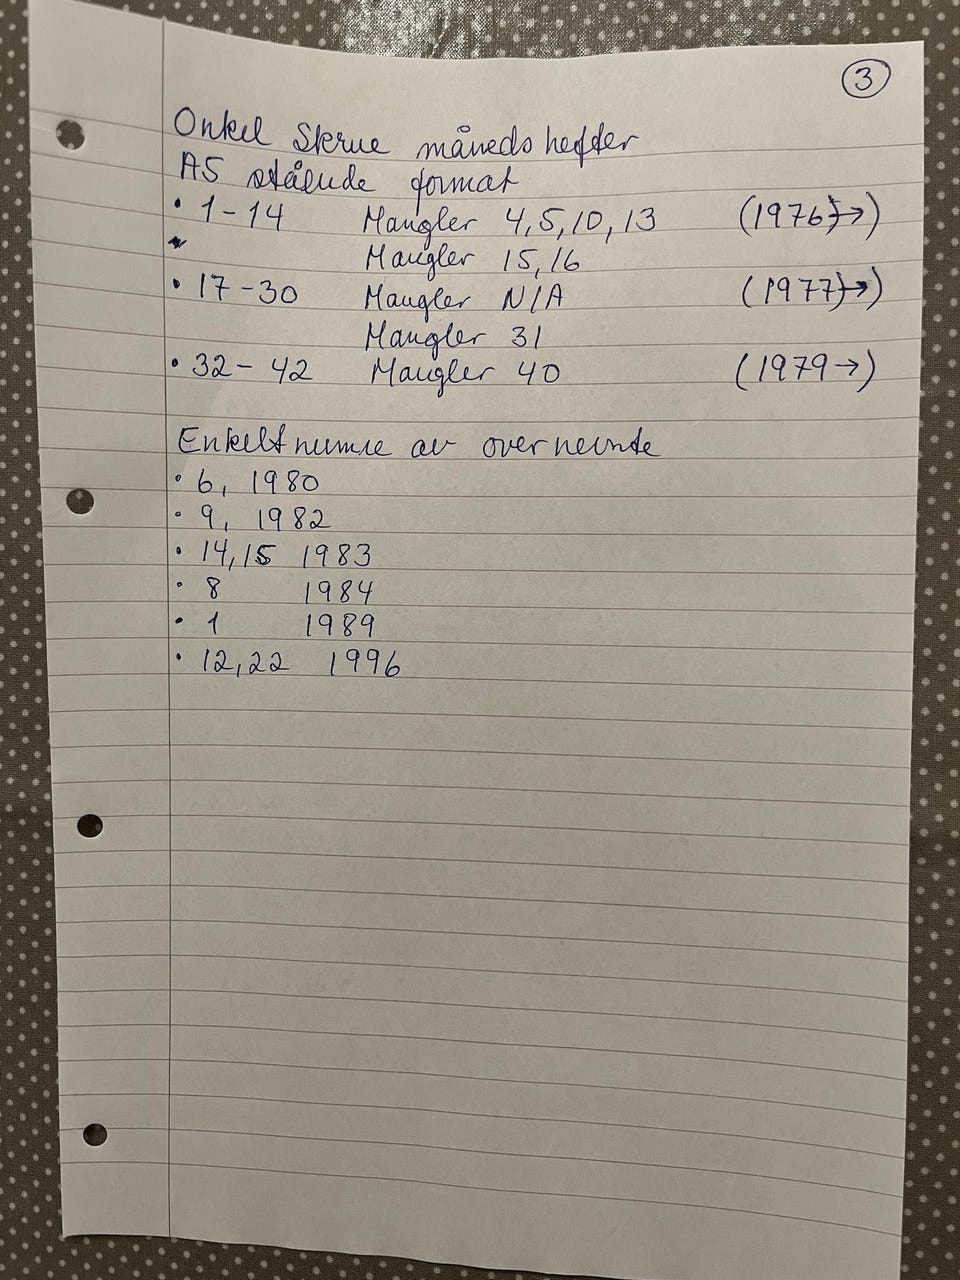 3
Onkel Skrue månedshefter
A5 stående format
• 1-14 Mangler 4,5,10,13 (1976→)
Mangler 15,16
• 17-30 Mangler N/A (1977→)
Mangler 31
• 32-42 Mangler 40 (1979→)
Enkeltnumre av overnevnte
• 6, 1980
• 9, 1982
• 14,15 1983
• 8 1984
• 1 1989
• 12,22 1996